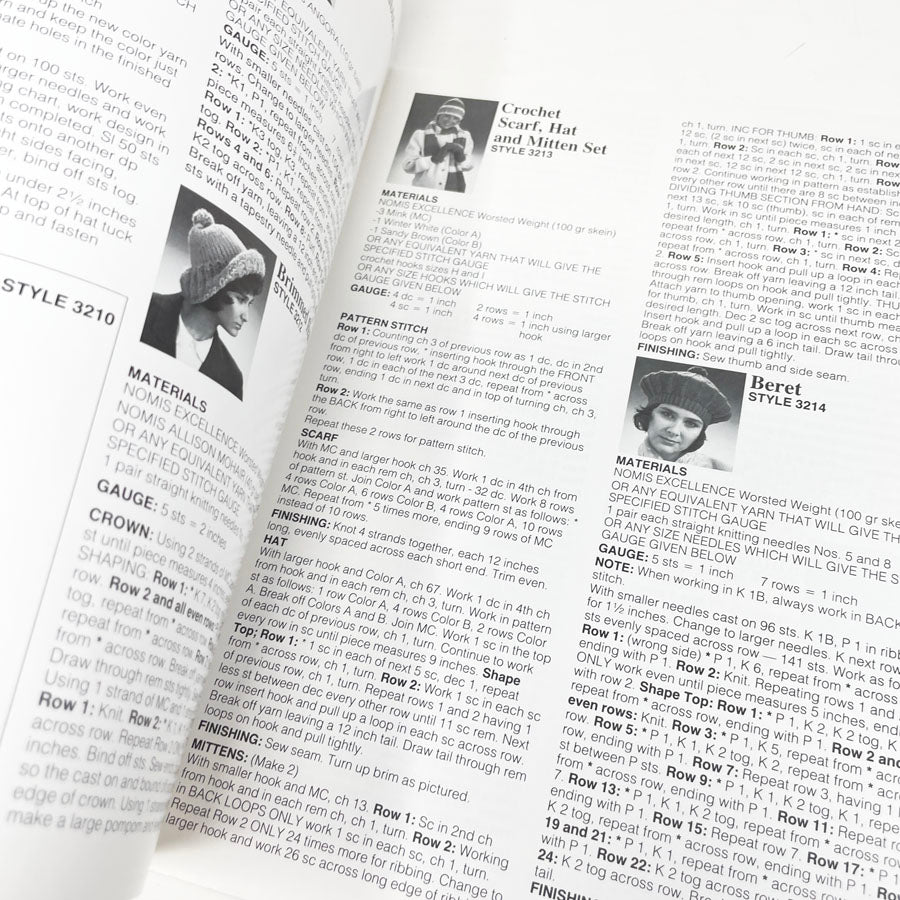 up the new color yarn
n and keep the color just
ate holes in the finished
on 100 sts. Work even
rger needles and work
g chart, work design in
n completed. Sl 50 sts
ts onto another dp
ght sides facing,
r, bind off sts tog.
under 2½ inches
At top of hat tuck
p and fasten
STYLE 3210
SPECIFIED STITCH GAUGE
OR ANY SIZE
GAUGE: 5 sts =
With smaller needles
rows. Change to larger
2: *K1, P1, repeat
piece measures
Row 1: *K3 tog,
tog. Row 2: P
Rows 4 and 6:
K2 tog across row
Break off yarn, leaving
sts with a tapestry needle
Brimmed
STYLE
MATERIALS
NOMIS EXCELLENCE Worsted
NOMIS ALLISON MOHAIR
OR ANY EQUIVALENT YARN
SPECIFIED STITCH GAUGE
1 pair straight knitting needles
GAUGE: 5 sts = 2 inches
CROWN: Using 2 strands
st until piece measures 4
SHAPING: Row 1: * K 7, K 2
row. Row 2 and all even rows:
tog, repeat from * across row.
repeat from * across row.
from * across row. Break off
Draw through rem sts tightly.
Using 1 strand of MC and
Row 1: Knit. Row 2: * K 1
across row. Repeat Row
inches. Bind off sts. Sew
so the cast on and bound
edge of crown. Using 1 strand
make a large pompom and
Crochet
Scarf, Hat
and Mitten Set
STYLE 3213
MATERIALS
NOMIS EXCELLENCE Worsted Weight (100 gr skein)
-3 Mink (MC)
-1 Winter White (Color A)
-1 Sandy Brown (Color B)
OR ANY EQUIVALENT YARN THAT WILL GIVE THE
SPECIFIED STITCH GAUGE
crochet hooks sizes H and I
OR ANY SIZE HOOKS WHICH WILL GIVE THE STITCH
GAUGE GIVEN BELOW
GAUGE: 4 dc = 1 inch 2 rows = 1 inch
4 sc = 1 inch 4 rows = 1 inch using larger
hook
PATTERN STITCH
Row 1: Counting ch 3 of previous row as 1 dc, dc in 2nd
dc of previous row, * inserting hook through the FRONT
from right to left work 1 dc around next dc of previous
row, 1 dc in each of the next 3 dc, repeat from * across
row, ending 1 dc in next dc and in top of turning ch, ch 3,
turn.
Row 2: Work the same as row 1 inserting hook through
the BACK from right to left around the dc of the previous
row.
Repeat these 2 rows for pattern stitch.
SCARF
With MC and larger hook ch 35. Work 1 dc in 4th ch from
hook and in each rem ch, ch 3, turn - 32 dc. Work 8 rows
of pattern st. Join Color A and work pattern st as follows: *
4 rows Color A, 6 rows Color B, 4 rows Color A, 10 rows
MC. Repeat from * 5 times more, ending 9 rows of MC
instead of 10 rows.
FINISHING: Knot 4 strands together, each 12 inches
long, evenly spaced across each short end. Trim even.
HAT
With larger hook and Color A, ch 67. Work 1 dc in 4th ch
from hook and in each rem ch, ch 3, turn. Work in pattern
st as follows: 1 row Color A, 4 rows Color B, 2 rows Color
A. Break off Colors A and B. Join MC. Work 1 sc in the top
of each dc of previous row, ch 1, turn. Continue to work
every row in sc until piece measures 9 inches. Shape
Top; Row 1: * 1 sc in each of next 5 sc, dec 1, repeat
from * across row, ch 1, turn. Row 2: Work 1 sc in each sc
of previous row, ch 1, turn. Repeat rows 1 and 2 having 1
less st between dec every other row until 11 sc rem. Next
row insert hook and pull up a loop in each sc across row.
Break off yarn leaving a 12 inch tail. Draw tail through rem
loops on hook and pull tightly.
FINISHING: Sew seam. Turn up brim as pictured.
MITTENS: (Make 2)
With smaller hook and MC, ch 13. Row 1: Sc in 2nd ch
from hook and in each rem ch, ch 1, turn. Row 2: Working
in BACK LOOPS ONLY work 1 sc in each sc, ch 1, turn.
Repeat Row 2 ONLY 24 times more for ribbing. Change to
larger hook and work 26 sc across long edge of
ch 1, turn. INC FOR THUMB: Row 1: 1 sc in e
12 sc, (2 sc in next sc) twice, sc in each of ne
1, turn. Row 2: Sc in each sc, ch 1, turn. Row
each of next 12 sc, 2 sc in next sc, 2 sc in ne
in next sc, 12 sc in next 12 sc, ch 1, turn. Ro
row 2. Continue working in pattern as establish
every other row until there are 8 sc between inc
DIVIDING THUMB SECTION FROM HAND: Sc
next 13 sc, sk 10 sc (thumb), sc in each of rem
1, turn. Work in sc until piece measures 1 inch
desired length, ch 1, turn. Row 1: * sc in next 2
repeat from * across row, ch 1, turn. Row 2: Sc
across row, ch 1, turn. Row 3: * sc in next sc, d
repeat from * across row, ch 1, turn. Row 4: Rep
2. Row 5: Insert hook and pull up a loop in each
across row. Break off yarn leaving a 12 inch tail.
through rem loops on hook and pull tightly. THU
Attach yarn to thumb opening, work 1 sc in each
for thumb, ch 1, turn. Work in sc until thumb mea
desired length. Dec 2 sc tog across next row, ch
Insert hook and pull up a loop in each sc across
Break off yarn leaving a 6 inch tail. Draw tail throu
loops on hook and pull tightly.
FINISHING: Sew thumb and side seam.
Beret
STYLE 3214
MATERIALS
NOMIS EXCELLENCE Worsted Weight (100 gr ske
OR ANY EQUIVALENT YARN THAT WILL GIVE THE
SPECIFIED STITCH GAUGE
1 pair each straight knitting needles Nos. 5 and 8
OR ANY SIZE NEEDLES WHICH WILL GIVE THE S
GAUGE GIVEN BELOW
GAUGE: 5 sts = 1 inch 7 rows = 1 inch
NOTE: When working in K 1B, always work in BACK
stitch.
With smaller needles cast on 96 sts. K 1B, P 1 in ribb
for 1½ inches. Change to larger needles. K next row
sts evenly spaced across row — 141 sts. Work as fo
Row 1: (wrong side) * P 1, K 6, repeat from * across
ending with P 1. Row 2: Knit. Repeating rows 1 and
ONLY work even until piece measures 5 inches, end
with row 2. Shape Top: Row 1: * P 1, K 2, K 2 tog, K
repeat from * across row, ending with P 1. Row 2 and
even rows: Knit. Row 3: * P 1, K 5, repeat from * acr
row. Row 5: * P 1, K 1, K 2 tog, K 2, repeat from * ac
row, ending with P 1. Row 7: Repeat row 3, having 1 l
st between P sts. Row 9: * P 1, K 1, K 2 tog, K 1, repe
from * across row, ending with P 1. Row 11: Repeat ro
7. Row 13: * P 1, K 1, K 2 tog, repeat from * across ro
ending with P 1. Row 15: Repeat row 7. Row 17: * P
K 2 tog, repeat from * across row, ending with P 1. Ro
19 and 21: * P 1, K 1, repeat from * across row, ending
with P 1. Row 22: K 2 tog across row, ending
24: K 2 tog across row. Break
tail.
FINISHING